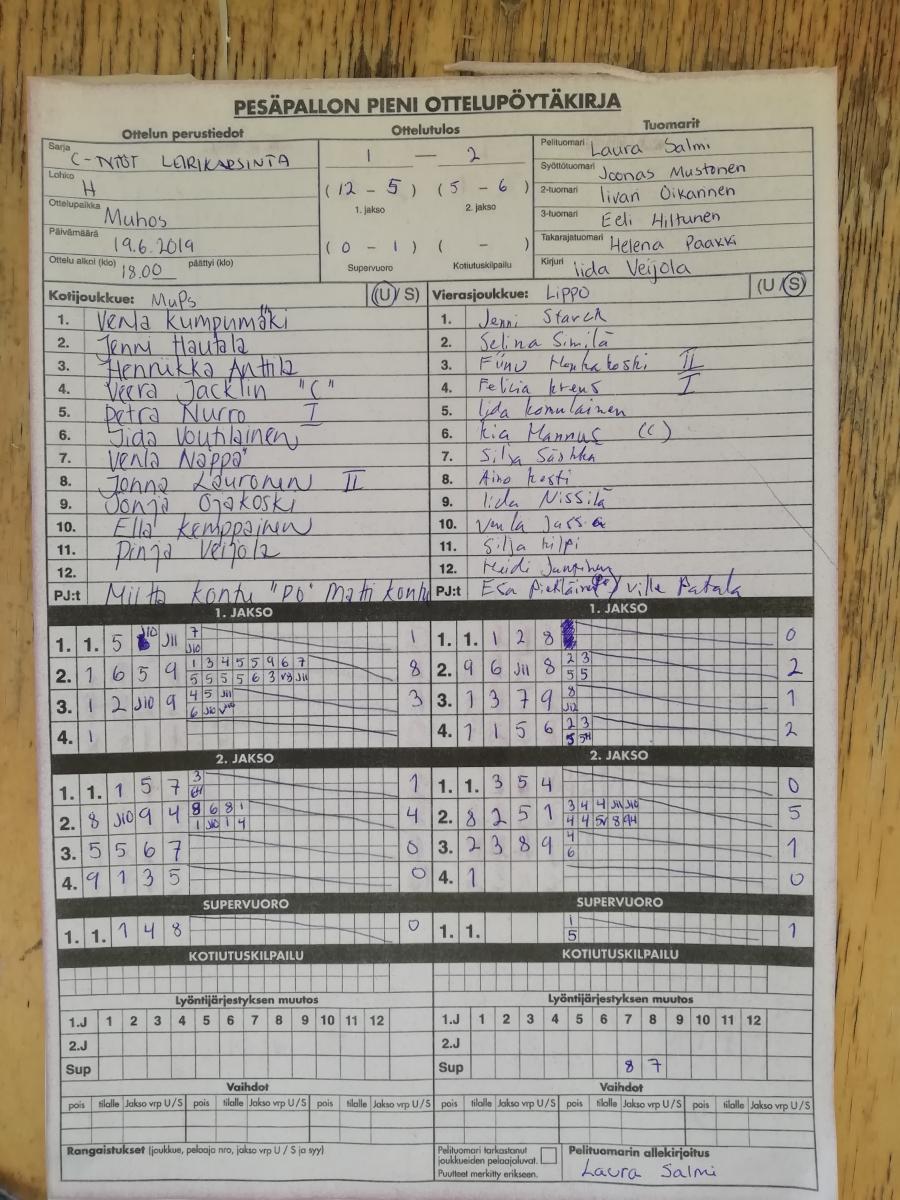 PESÄPALLON PIENI OTTELUPÖYTÄKIRJA
Ottelun perustiedot Ottelutulos Tuomarit
Sarja C-TYTÖT LEIRIKARSINTA
Lohko H
Ottelupaikka Muhos
Päivämäärä 19.6.2019
Ottelu alkoi (klo) 18.00 päättyi (klo)
1 — 2
(12 - 5) (5 - 6)
1. jakso 2. jakso
(0 - 1) ( - )
Supervuoro Kotiutuskilpailu
Pelituomari Laura Salmi
Syöttötuomari Joonas Mustonen
2-tuomari Iivari Oikarinen
3-tuomari Eeli Hiltunen
Takarajatuomari Helena Paakki
Kirjuri Iida Veijola
Kotijoukkue: MuPs (U/S)
1. Venla Kumpumäki
2. Jenni Hautala
3. Hennukka Anttila
4. Veera Jacklin "C"
5. Petra Nurro I
6. Iida Voutilainen
7. Venla Näppä
8. Jonna Lauronen II
9. Jonja Ojakoski
10. Ella Kemppainen
11. Pinja Veijola
12.
PJ:t Miitta Kontu "PO" Matti Kontu
Vierasjoukkue: LIPPO (U/S)
1. Jenni Starck
2. Selina Similä
3. II
4. Felicia I
5. Iida Komulainen
6. Kia Mannus (C)
7. Silja
8. Aino
9. Iida Nissilä
10. Venla
11. Silja Kilpi
12. Heidi
PJ:t Esa Ville Patala
1. JAKSO 1. JAKSO
1. 1. 5 J10 J11 7 1
J10
2. 1 6 5 9 1 3 4 5 5 9 6 7 8
5 5 5 5 6 3 V8 J11
3. 1 2 J10 9 4 5 J11 3
6 J10
4. 1
1. 1. 1 2 8 0
2. 9 6 J11 8 2 3 2
5 5
3. 1 3 7 9 8 1
J12
4. 1 1 5 6 2 3 2
5 5H
2. JAKSO 2. JAKSO
1. 1. 1 5 7 3 1
6H
2. 8 J10 9 4 8 6 8 1 4
1 J10 1 4
3. 5 5 6 7 0
4. 9 1 3 5 0
1. 1. 3 5 4 0
2. 8 2 5 1 3 4 4 J11 J10 5
4 4 5V 8 9H
3. 2 3 8 9 4 1
6
4. 1 0
SUPERVUORO SUPERVUORO
1. 1. 1 4 8 0
1. 1. 1 1
5
KOTIUTUSKILPAILU KOTIUTUSKILPAILU
Lyöntijärjestyksen muutos Lyöntijärjestyksen muutos
1.J 1 2 3 4 5 6 7 8 9 10 11 12 1.J 1 2 3 4 5 6 7 8 9 10 11 12
2.J 2.J
Sup Sup 8 7
Vaihdot Vaihdot
pois tilalle Jakso vrp U/S pois tilalle Jakso vrp U/S pois tilalle Jakso vrp U/S pois tilalle Jakso vrp U/S pois tilalle Jakso vrp U/S pois tilalle Jakso vrp U/S
Rangaistukset (joukkue, pelaaja nro, jakso vrp U / S ja syy)
Pelituomari tarkastanut
joukkueiden pelaajaluvat.
Puutteet merkitty erikseen.
Pelituomarin allekirjoitus
Laura Salmi